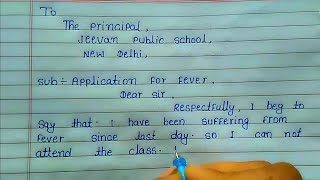 To
The Principal,
Jeevan Public School,
New Delhi,
Sub:- Application for fever,
Dear Sir,
Respectfully, I beg to
say that. I have been suffering from
fever since last day. so I can not
attend the class.